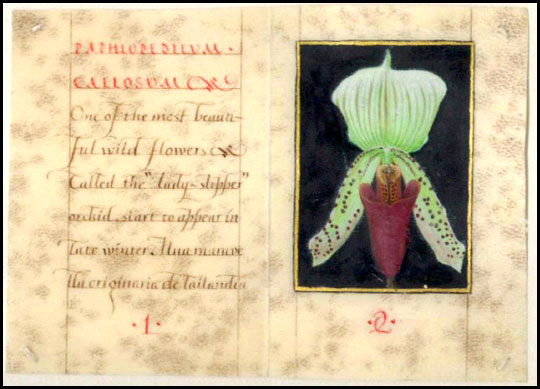 PAPHIOPEDILUM
CALLOSUM
One of the most beauti-
ful wild flowers
Called the "lady-slepper"
orchid, start to appear in
late winter. Una
lla originaria de tailandea
·1·
·2·